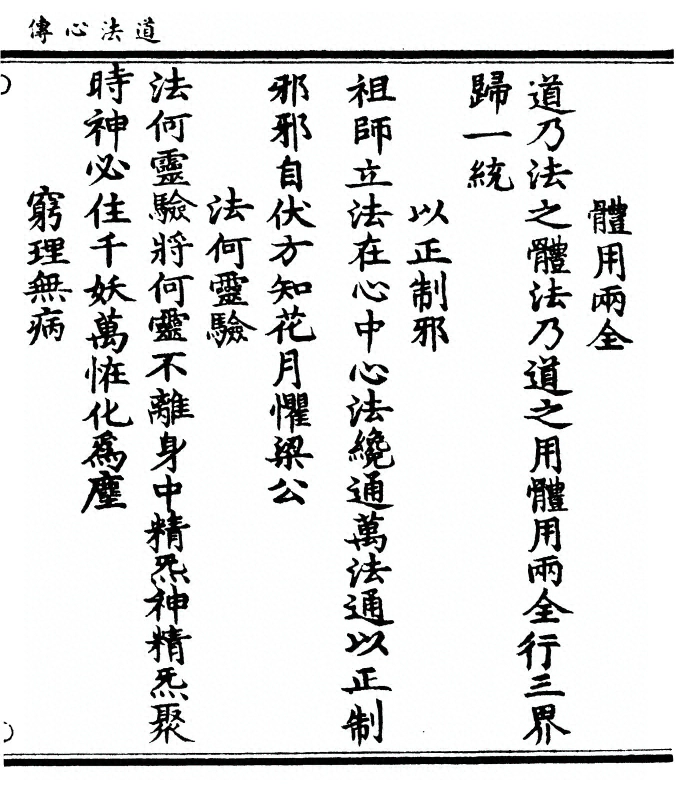 道法心傳
體用兩全
道乃法之體法乃道之用體用兩全行三界
歸一統
以正制邪
祖師立法在心中心法纔通萬法通以正制
邪邪自伏方知花月懼梁公
法何靈驗
法何靈驗將何靈不離身中精炁神精炁聚
時神必住千妖萬恠化爲塵
窮理無病